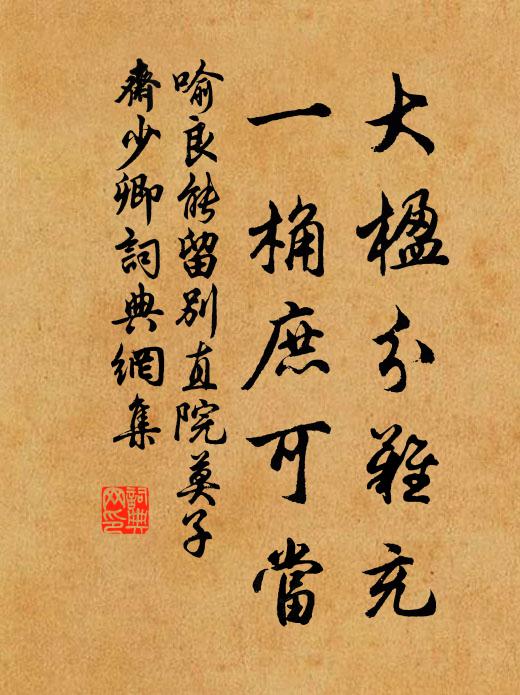 大楹分難充
一桷庶可當
喻良能留別直院莫子
齋少卿詞典網集
詞典網印